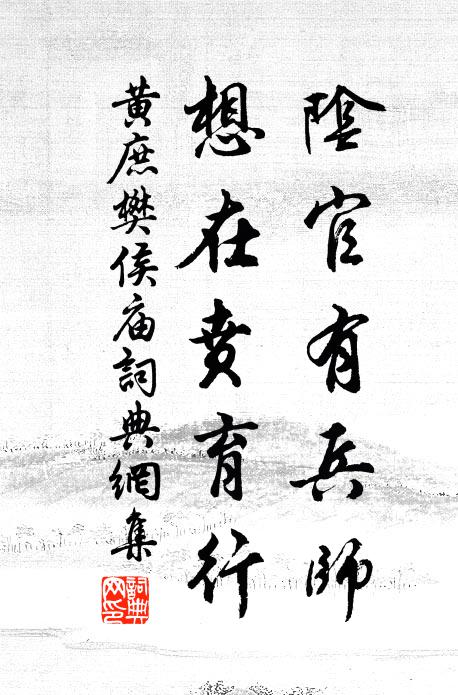 陰官有兵師
想在賁育行
黃庶樊侯庙詞典網集
詞典网印